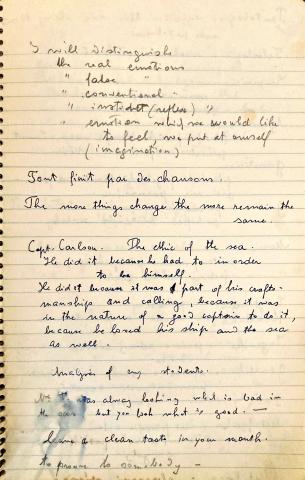 I will distinguish
the real emotions
" false "
" conventional "
" instinct (reflex) "
" emotion which we would like
to feel, we put at ourself
(imagination)
Tout finit par des chansons.
The more things change the more remain the
same.
Capt. Carlson. The ethic of the sea.
He did it because he had to in order
to be himself.
He did it because it was part of his crafts-
manship and calling, because it was
in the nature of a good captain to do it,
because he loved his ship and the sea
as well.
Analysis of my students.
was always looking what is bad in
the but you look what is good. —
leave a clean taste in your mouth.
to prove to somebody —